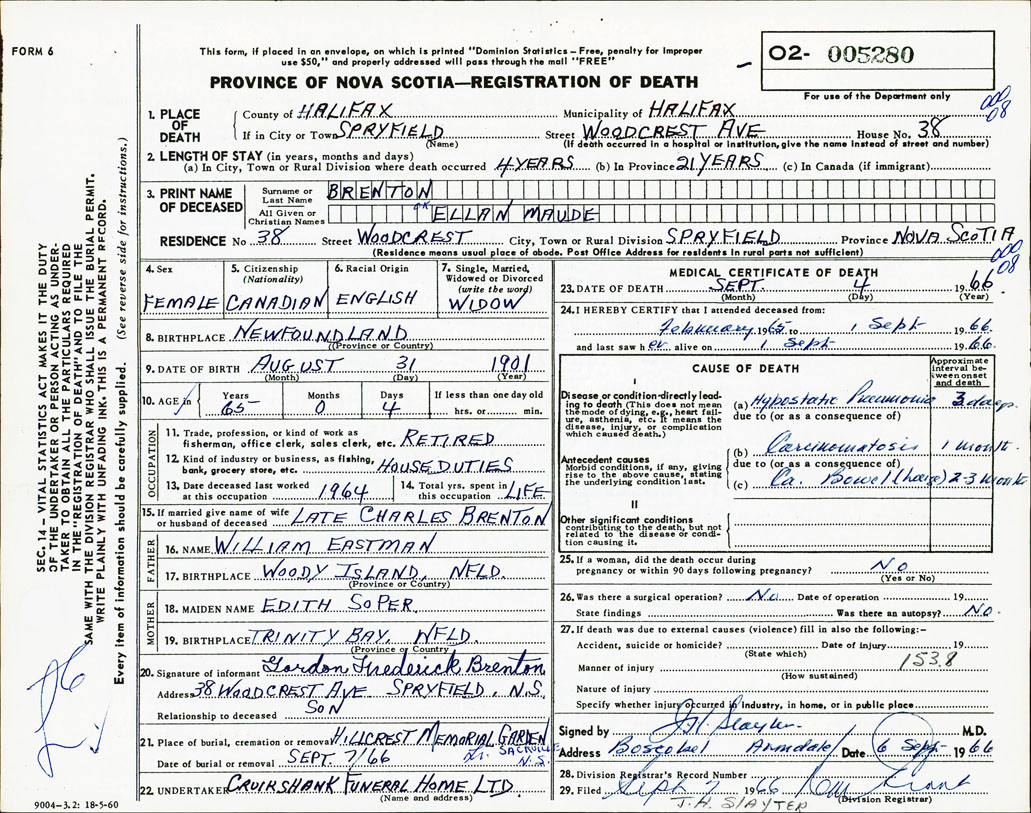 FORM 6
This form, if placed in an envelope, on which is printed "Dominion Statistics – Free, penalty for improper
use $50," and properly addressed will pass through the mail "FREE"
PROVINCE OF NOVA SCOTIA—REGISTRATION OF DEATH
02- 005280
For use of the Department only
1. PLACE OF DEATH County of HALIFAX Municipality of HALIFAX
If in City or Town SPRYFIELD Street WOODCREST AVE House No. 38
(Name) (If death occurred in a hospital or institution, give the name instead of street and number)
2. LENGTH OF STAY (in years, months and days)
(a) In City, Town or Rural Division where death occurred 4 YEARS (b) In Province 21 YEARS (c) In Canada (if immigrant)
3. PRINT NAME OF DECEASED Surname or Last Name BRENTON
All Given or Christian Names OK ELLAN MAUDE
RESIDENCE No 38 Street WOODCREST City, Town or Rural Division SPRYFIELD Province NOVA SCOTIA
(Residence means usual place of abode. Post Office Address for residents in rural parts not sufficient)
000
08
000
08
4. Sex FEMALE
5. Citizenship (Nationality) CANADIAN
6. Racial Origin ENGLISH
7. Single, Married, Widowed or Divorced (write the word) WIDOW
8. BIRTHPLACE NEWFOUNDLAND
(Province or Country)
9. DATE OF BIRTH AUGUST 31 1901
(Month) (Day) (Year)
10. AGE in Years 65 Months 0 Days 4 If less than one day old hrs. or min.
OCCUPATION
11. Trade, profession, or kind of work as
fisherman, office clerk, sales clerk, etc. RETIRED
12. Kind of industry or business, as fishing,
bank, grocery store, etc. HOUSE DUTIES
13. Date deceased last worked
at this occupation 1964
14. Total yrs. spent in
this occupation LIFE
15. If married give name of wife
or husband of deceased LATE CHARLES BRENTON
FATHER
16. NAME WILLIAM EASTMAN
17. BIRTHPLACE WOODY ISLAND, NFLD.
(Province or Country)
MOTHER
18. MAIDEN NAME EDITH SOPER
19. BIRTHPLACE TRINITY BAY, NFLD.
(Province or Country)
20. Signature of informant Gordon Frederick Brenton
Address 38 WOODCREST AVE SPRYFIELD, N.S.
Relationship to deceased SON
21. Place of burial, cremation or removal HILLCREST MEMORIAL GARDEN
SACKVILLE
N.S.
Date of burial or removal SEPT. 7/66
22. UNDERTAKER CRUIKSHANK FUNERAL HOME LTD.
(Name and address)
MEDICAL CERTIFICATE OF DEATH
23. DATE OF DEATH SEPT. 4 1966
(Month) (Day) (Year)
24. I HEREBY CERTIFY that I attended deceased from:
February 1965 to 1 Sept 1966
and last saw her alive on 1 Sept 1966
CAUSE OF DEATH
Approximate interval between onset and death
I
Disease or condition directly leading to death (This does not mean the mode of dying, e.g., heart failure, asthenia, etc. It means the disease, injury, or complication which caused death.)
(a) Hypostatic Pneumonia 3 days
due to (or as a consequence of)
Antecedent causes
Morbid conditions, if any, giving rise to the above cause, stating the underlying condition last.
(b) Carcinomatosis 1 month
due to (or as a consequence of)
(c) Ca. Bowel (large) 2-3 month
II
Other significant conditions
contributing to the death, but not related to the disease or condition causing it.
25. If a woman, did the death occur during
pregnancy or within 90 days following pregnancy? NO
(Yes or No)
26. Was there a surgical operation? No Date of operation 19
State findings Was there an autopsy? No.
27. If death was due to external causes (violence) fill in also the following:–
Accident, suicide or homicide? Date of injury 19
(State which)
153.8
Manner of injury
(How sustained)
Nature of injury
Specify whether injury occurred in industry, in home, or in public place
Signed by J H Slayter M.D.
Address Boscobel Armdale Date 6 Sept 1966
28. Division Registrar's Record Number
29. Filed Sept 7 1966
(Division Registrar)
J. H. SLAYTER
SEC. 14 – VITAL STATISTICS ACT MAKES IT THE DUTY
OF THE UNDERTAKER OR PERSON ACTING AS UNDER-
TAKER TO OBTAIN ALL THE PARTICULARS REQUIRED
IN THE "REGISTRATION OF DEATH" AND TO FILE THE
SAME WITH THE DIVISION REGISTRAR WHO SHALL ISSUE THE BURIAL PERMIT.
WRITE PLAINLY WITH UNFADING INK. THIS IS A PERMANENT RECORD.
Every item of information should be carefully supplied. (See reverse side for instructions.)
9004–3.2: 18-5-60